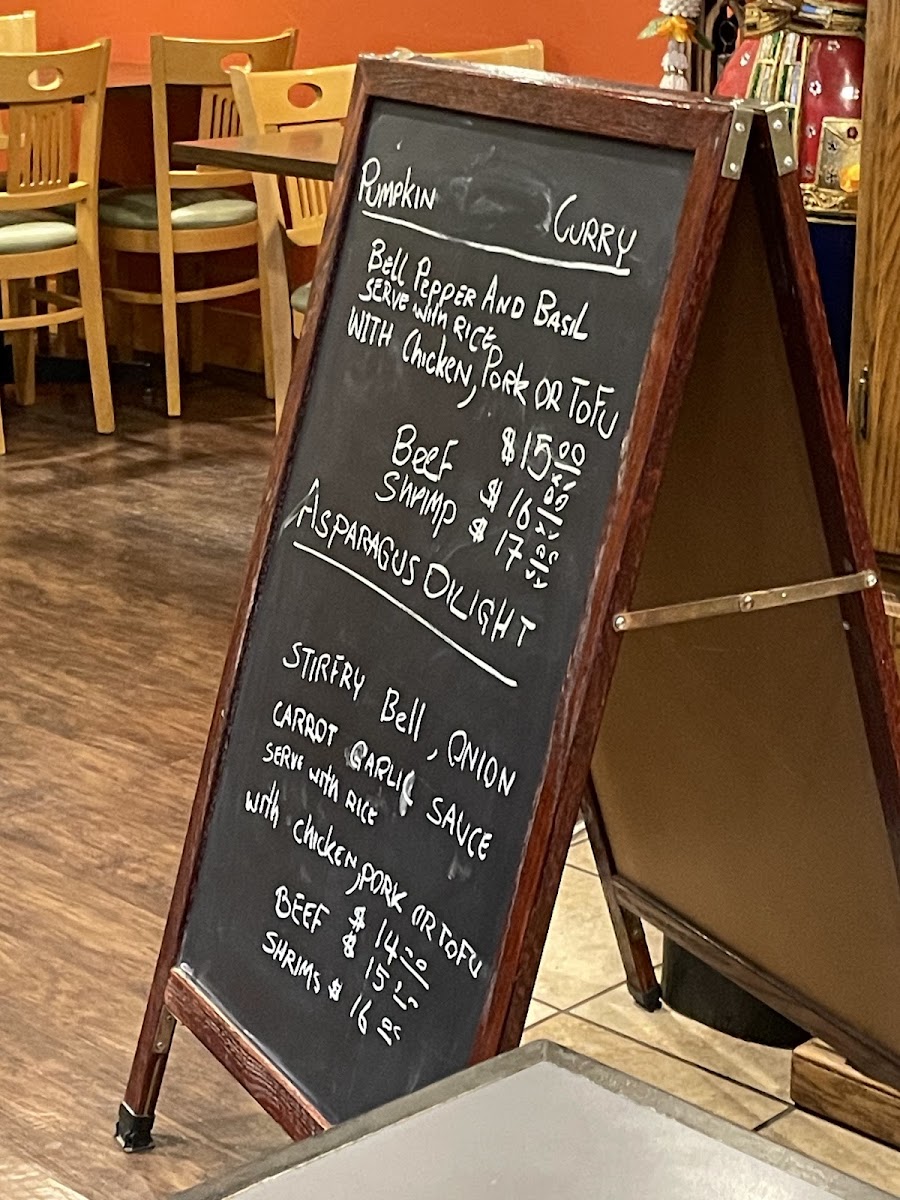 PUMPKIN CURRY
Bell PEPPER AND BASIL
SERVE with RICE
WITH Chicken, PORK OR TOFU
$15.00
BEEF $16.00
SHRIMP $17.00
ASPARAGUS DILIGHT
STIRFRY Bell, ONION
CARROT GARLIC SAUCE
SERVE with RICE
with chicken, PORK OR TOFU
$14.00
BEEF $15.00
SHRIMS $16.00